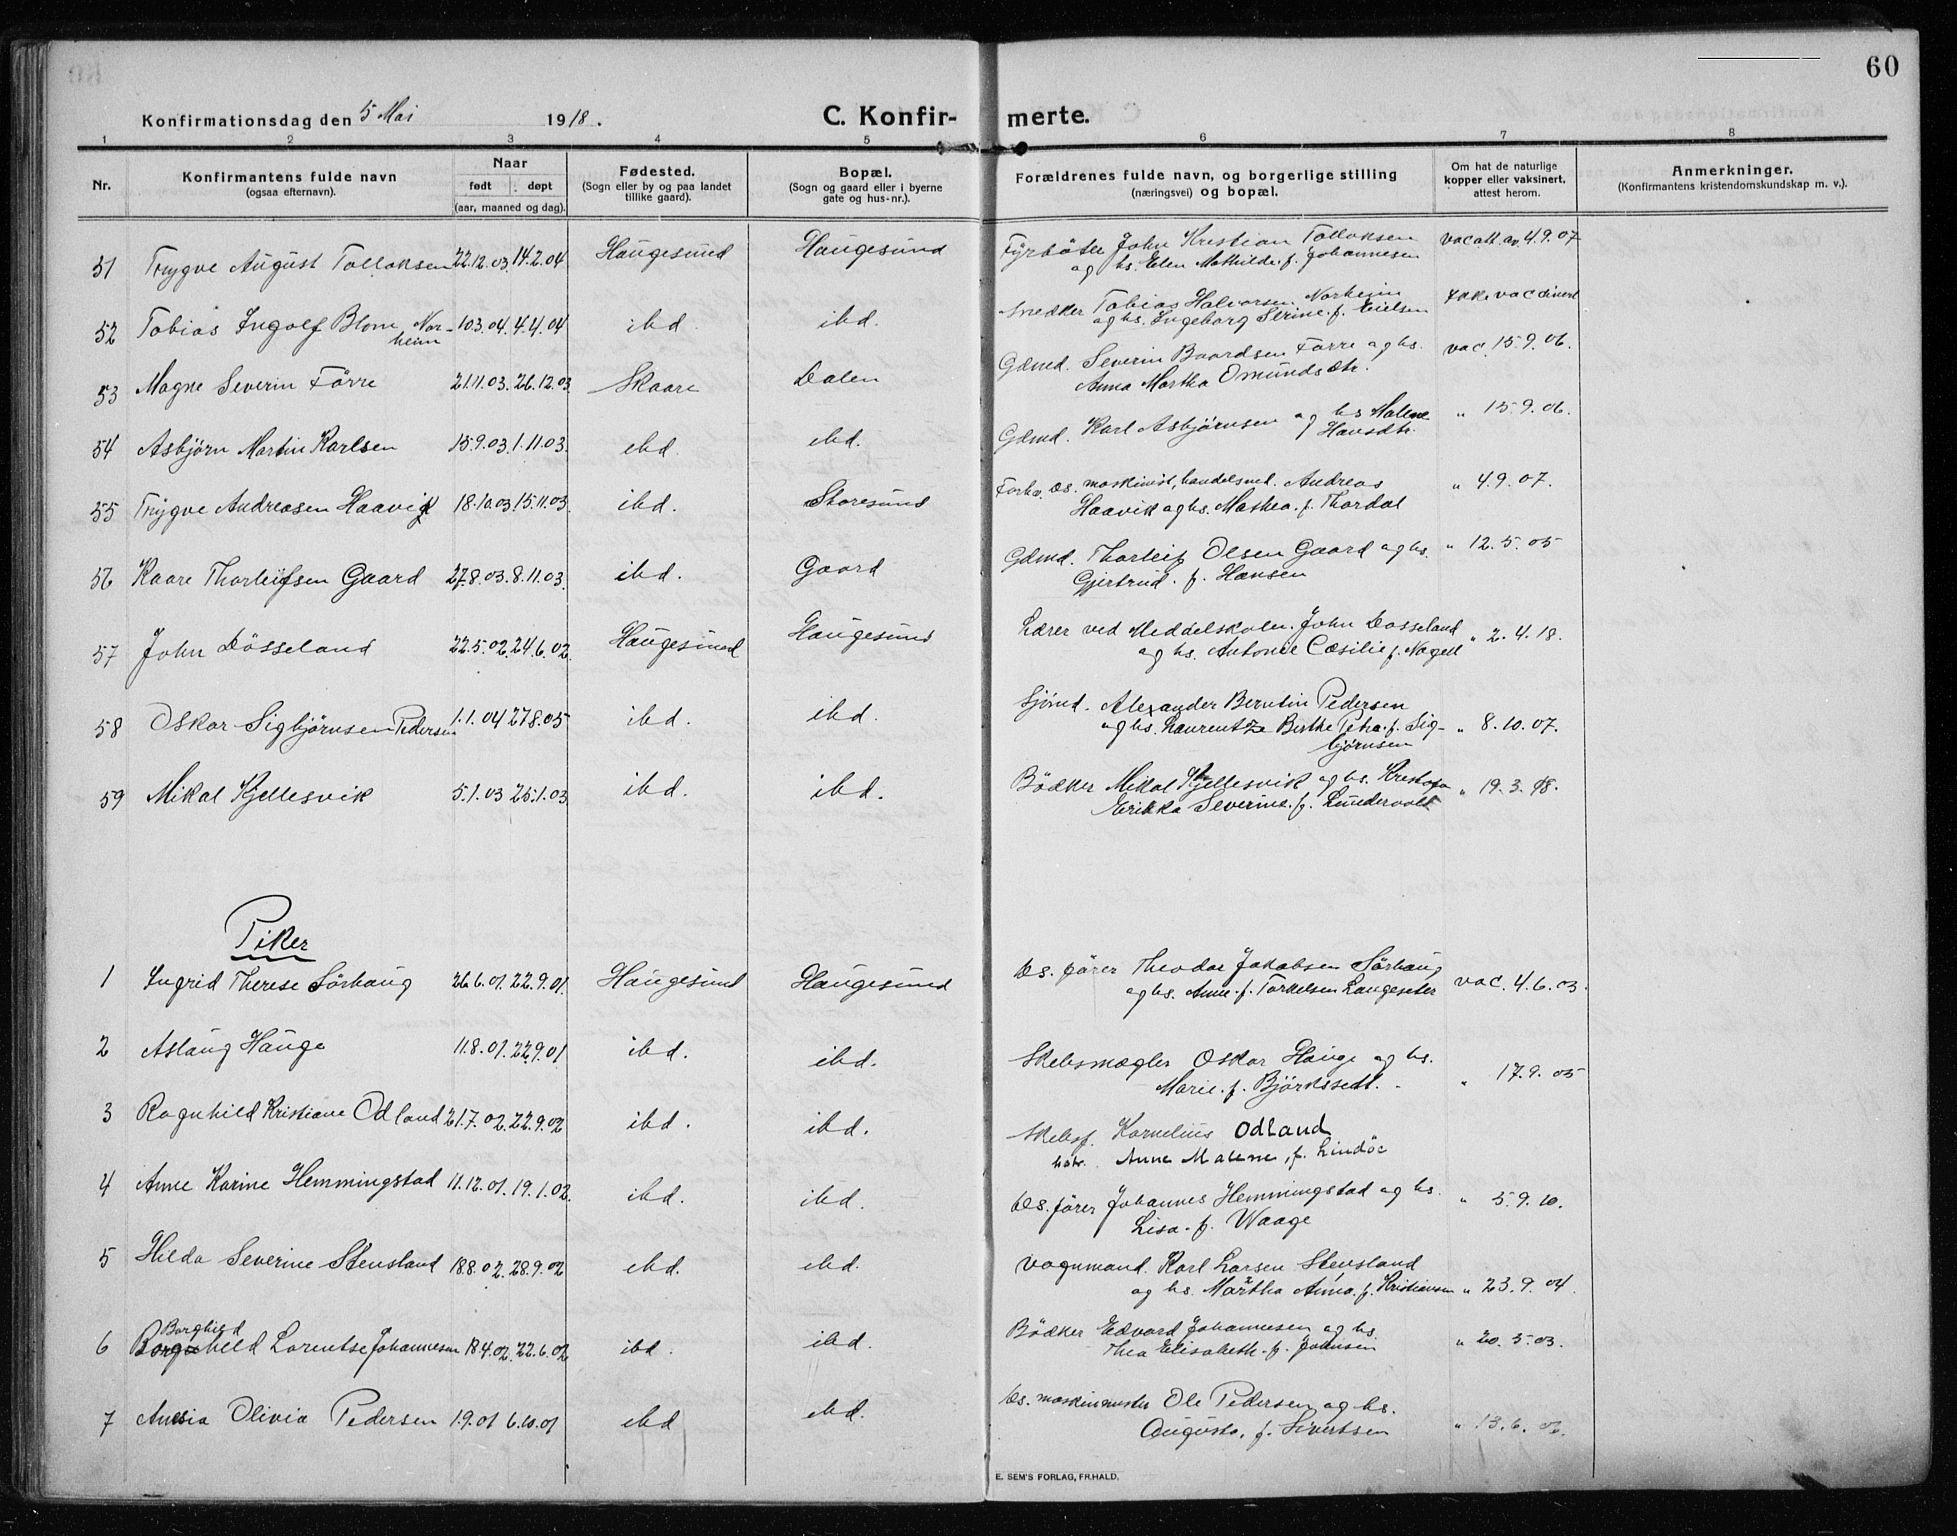 60
Konfirmationsdag den 5 Mai 1918.
C. Konfirmerte.
1 2 3 4 5 6 7 8
Nr.
Konfirmantens fulde navn
(ogsaa efternavn).
Naar
født døpt
(aar, maaned og dag).
Fødested.
(Sogn eller by og paa landet
tillike gaard).
Bopæl.
(Sogn og gaard eller i byerne
gate og hus-nr.).
Forældrenes fulde navn, og borgerlige stilling
(næringsvei) og bopæl.
Om hat de naturlige
kopper eller vaksinert,
attest herom.
Anmerkninger.
(Konfirmantens kristendomskundskap m. v.).
51 Trygve August Tolloksen 22.12.03. 14.2.04 Haugesund Haugesund Fyrbøter John Kristian Tolloksen vac att. av 4.9.07
og hs. Elen Mathilde. f. Johannesen
52 Tobias Ingolf Blom Nor- 10.3.04. 4.4.04 ibd. ibd. Snedker Tobias Halvorsen Norheim Ikke vaccinert
heim og hs. Ingeborg Serine. f. Eielsen
53 Magne Severin Förre 21.11.03. 26.12.03 Skaare Dalen Gdmd. Severin Baardsen Førre og hs. vac. 15.9.06.
Anna Martha Omundsdtr.
54 Asbjörn Martin Karlsen 15.9.03 1.11.03. ibd. ibd. Gdmd. Karl Asbjørnsen og hs Malene " 15.9.06.
Hansdtr.
55 Trygve Andreasen Haavik 18.10.03. 15.11.03. ibd. Storesund Forhv. ds. maskinist, handelsmd. Andreas " 4.9.07.
Haavik og hs. Mathea. f. Thordal
56 Kaare Thorleifsen Gaard 27.8.03. 8.11.03. ibd. Gaard Gdmd. Thorleif Olsen Gaard og hs. " 12.5.05
Gjertrud. f. Hansen
57 John Dösseland 22.5.02. 24.6.02. Haugesund Haugesund Lærer ved Middelskolen. John Dosseland " 2.4.18.
og hs. Antonie Cæsilie f. Nagell
58 Oskar Sigbjörnsen Pedersen 1.1.04 27.8.05 ibd. ibd. Sjömd. Alexander Berntin Pedersen
og hs. Laurentze Birthe Petra. f. Sig- " 8.10.07.
bjørnsen
59 Mikal Kjellesvik 5.1.03 25.1.03. ibd. ibd. Bödker Mikal Kjellesvik og hs. " 19.3.98.
Erikka Severine. f. Lundervold
Piker
1 Ingrid Therese Sörhaug 26.6.01. 22.9.01. Haugesund Haugesund Ds. fører Theodor Jakobsen Sörhaug vac. 4.6.03.
og hs. Anne. f. Torkelsen Langeseter
2 Aslaug Hauge 11.8.01. 22.9.01 ibd. ibd. Skibsmægler Oskar Hauge og hs. " 17.9.05
Marie. f.
3 Ragnhild Kristiane Odland 21.7.02. 22.9.02 ibd. ibd. Skibsf. Kornelius Odland
hstr. Anne Malene, f. Lindöe
4 Anne Karine Hemmingstad 11.12.01. 19.1.02. ibd. ibd. Ds. fører Johannes Hemmingstad og hs. " 5.9.10.
Lisa. f. Waage
5 Hilda Severine Stensland 18.8.02. 28.9.02 ibd. ibd. Vognmand. Karl Larsen Stensland
og hs. Martha Anna. f. Kristiansen " 23.9.04.
Borghild
6 Borghild Lorentse Johannesen 18.4.02. 22.6.02 ibd. ibd. Bödker Edvard Johannesen og hs. " 20.5.03.
Thea Elisabeth. f. Johnsen
7 Anesia Olivia Pedersen 1.9.01 6.10.01 ibd ibd. Ds. maskinmester Ole Pedersen og hs.
Augusta. f. Sivertsen " 13.6.06.
E. SEM'S FORLAG, FR.HALD.